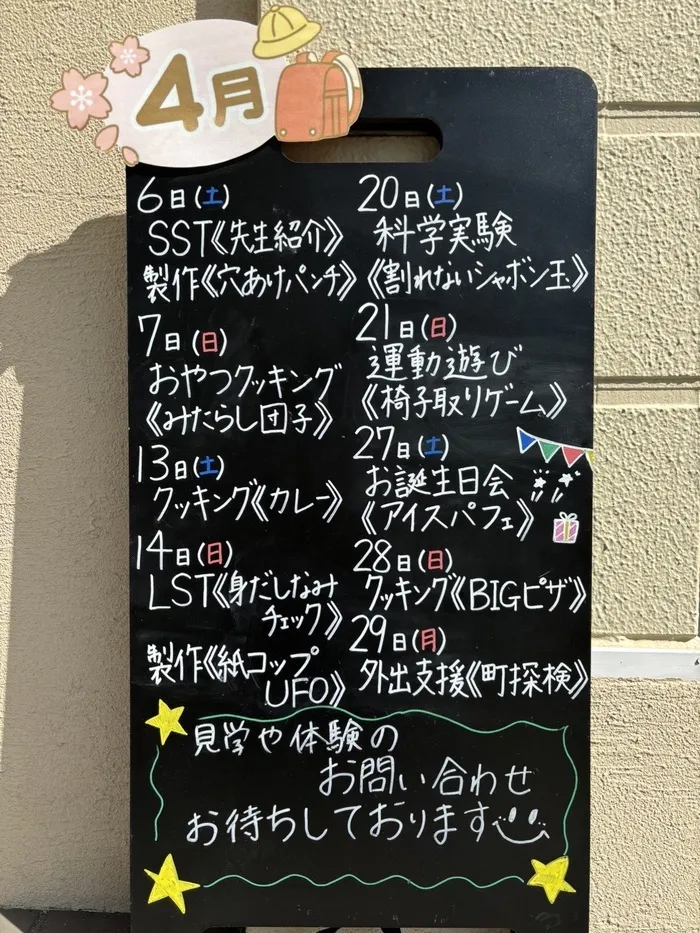 4月
6日(土)
SST《先生紹介》
製作《穴あけパンチ》
7日(日)
おやつクッキング
《みたらし団子》
13日(土)
クッキング《カレー》
14日(日)
LST《身だしなみ
チェック》
製作《紙コップ
UFO》
20日(土)
科学実験
《割れないシャボン玉》
21日(日)
運動遊び
《椅子取りゲーム》
27日(土)
お誕生日会
《アイスパフェ》
28日(日)
クッキング《BIGピザ》
29日(月)
外出支援《町探検》
見学や体験の
お問い合わせ
お待ちしております